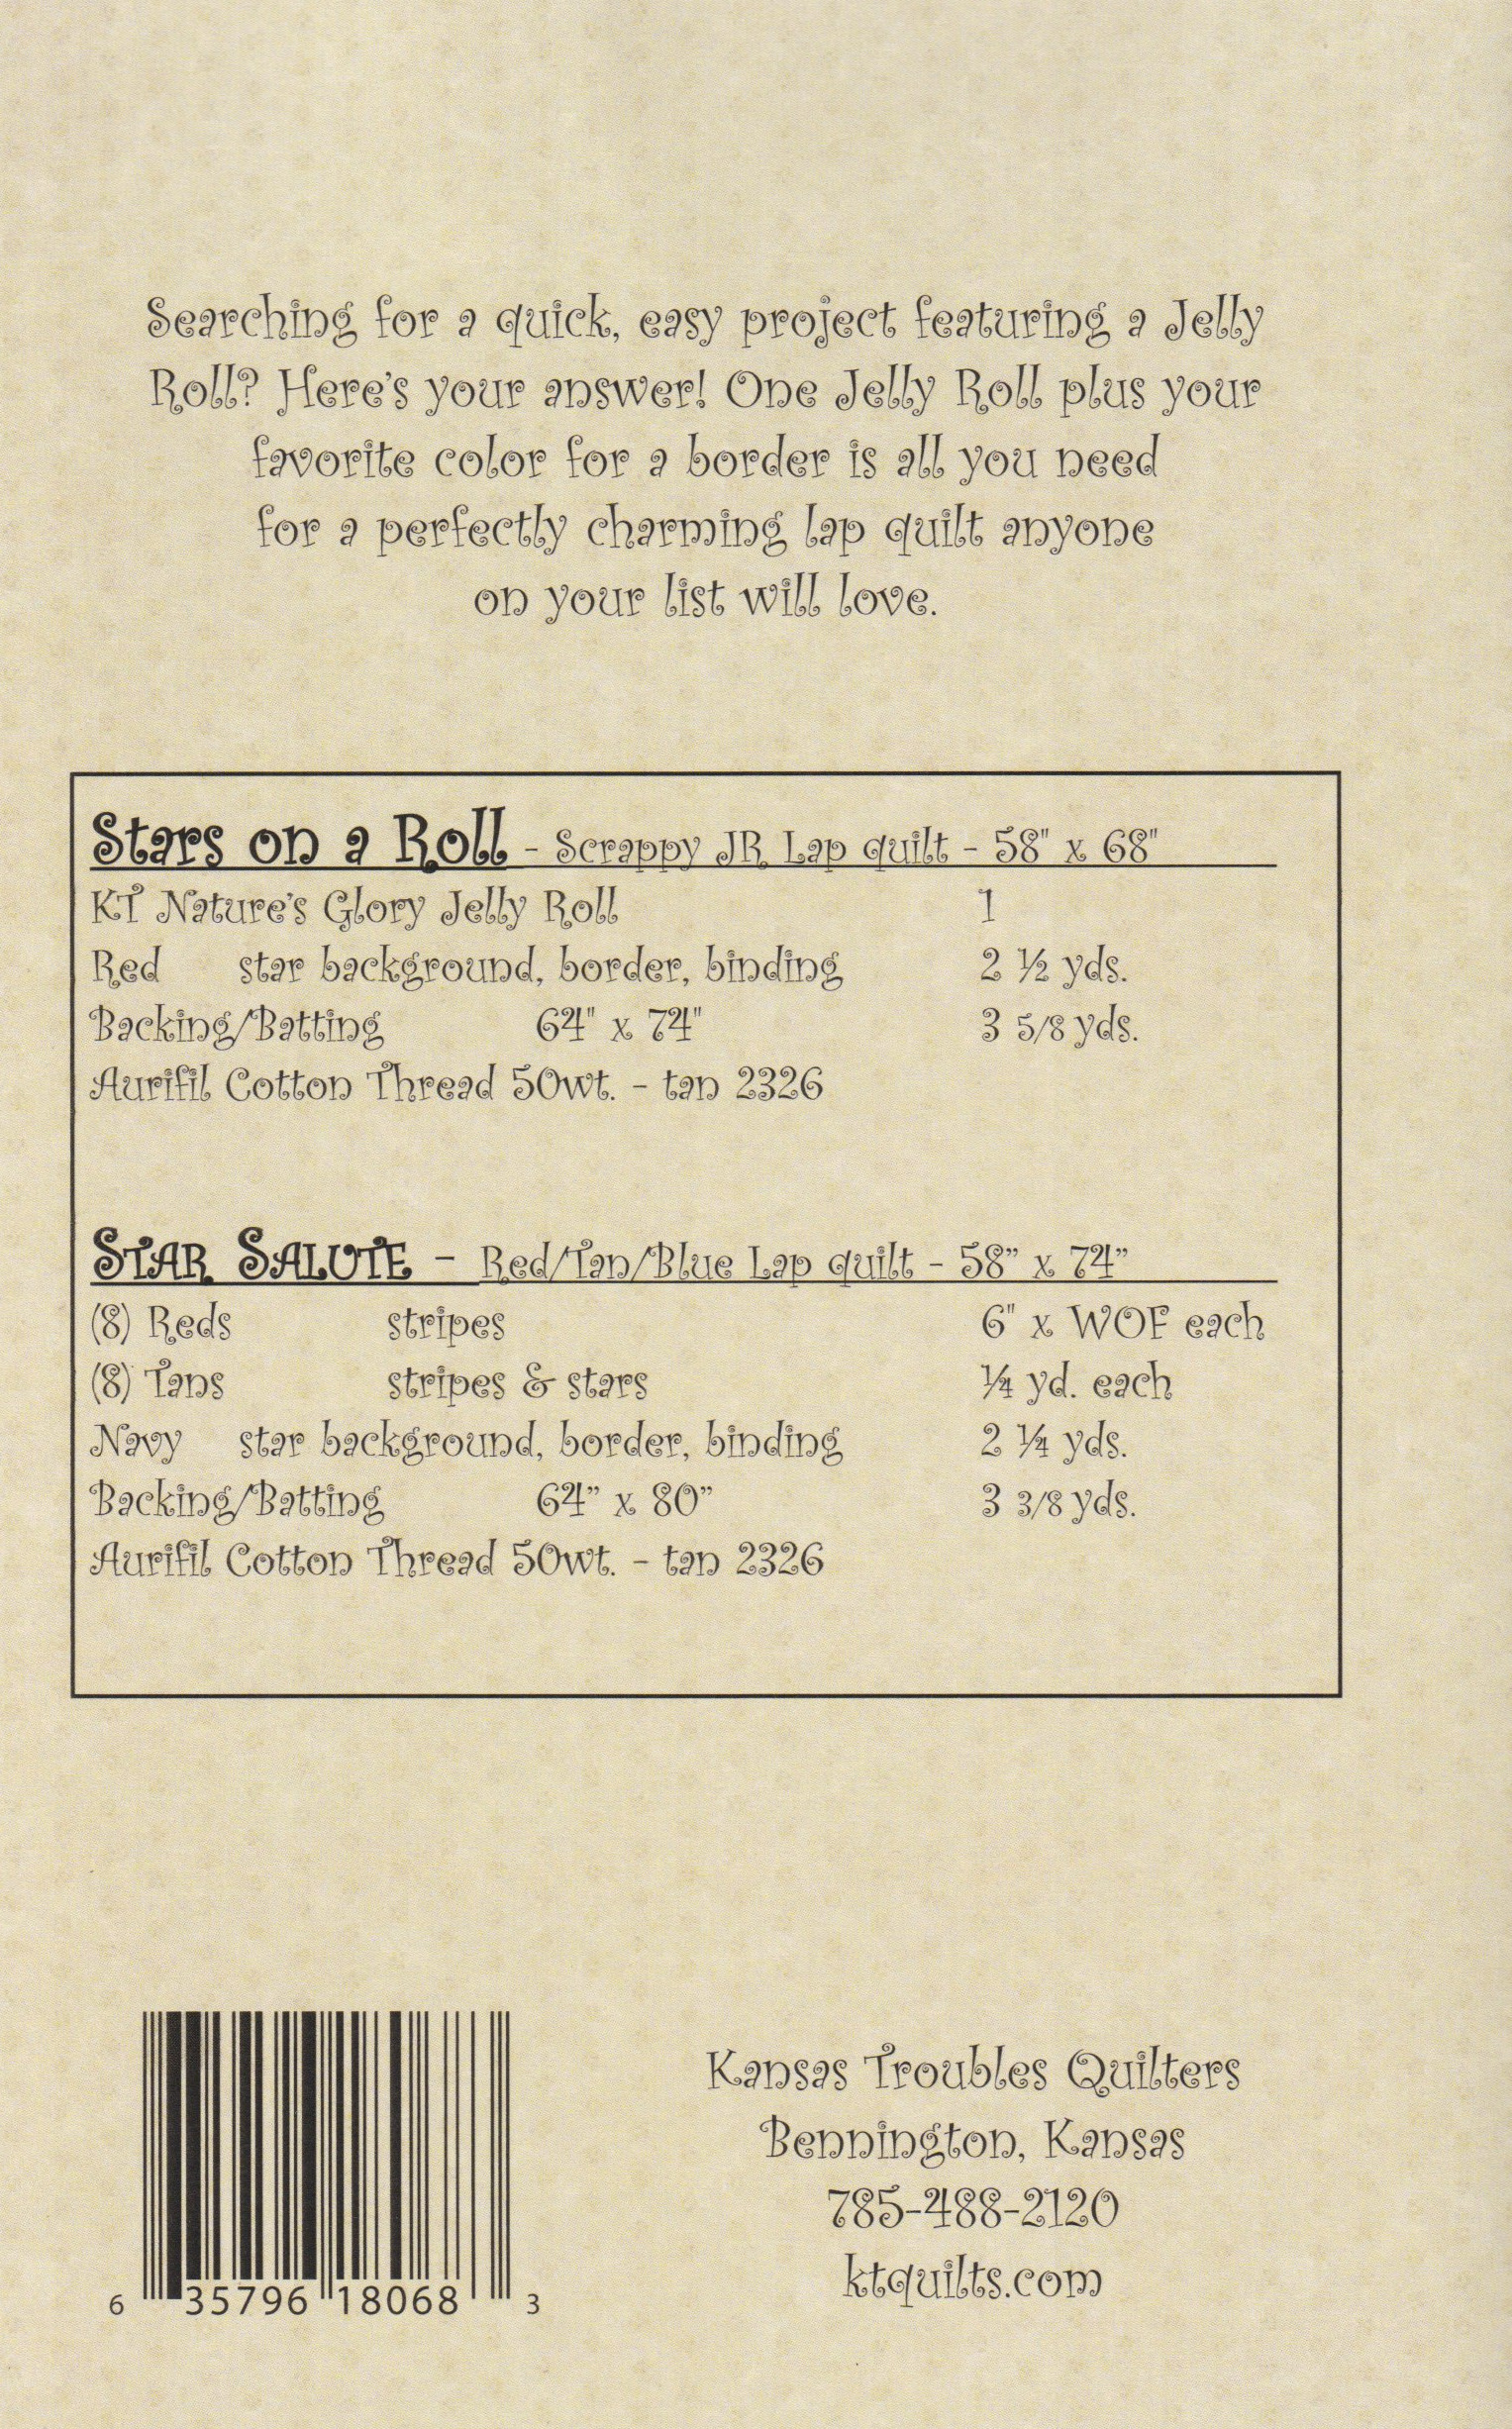 Searching for a quick, easy project featuring a Jelly
Roll? Here's your answer! One Jelly Roll plus your
favorite color for a border is all you need
for a perfectly charming lap quilt anyone
on your list will love.
Stars on a Roll - Scrappy JR Lap quilt - 58" x 68"
KT Nature's Glory Jelly Roll 1
Red star background, border, binding 2 ½ yds.
Backing/Batting 64" x 74" 3 5/8 yds.
Aurifil Cotton Thread 50wt. - tan 2326
STAR SALUTE - Red/Tan/Blue Lap quilt - 58” x 74”
(8) Reds stripes 6" x WOF each
(8) Tans stripes & stars ¼ yd. each
Navy star background, border, binding 2 ¼ yds.
Backing/Batting 64” x 80” 3 3/8 yds.
Aurifil Cotton Thread 50wt. - tan 2326
Kansas Troubles Quilters
Bennington, Kansas
785-488-2120
ktquilts.com
6 35796 18068 3